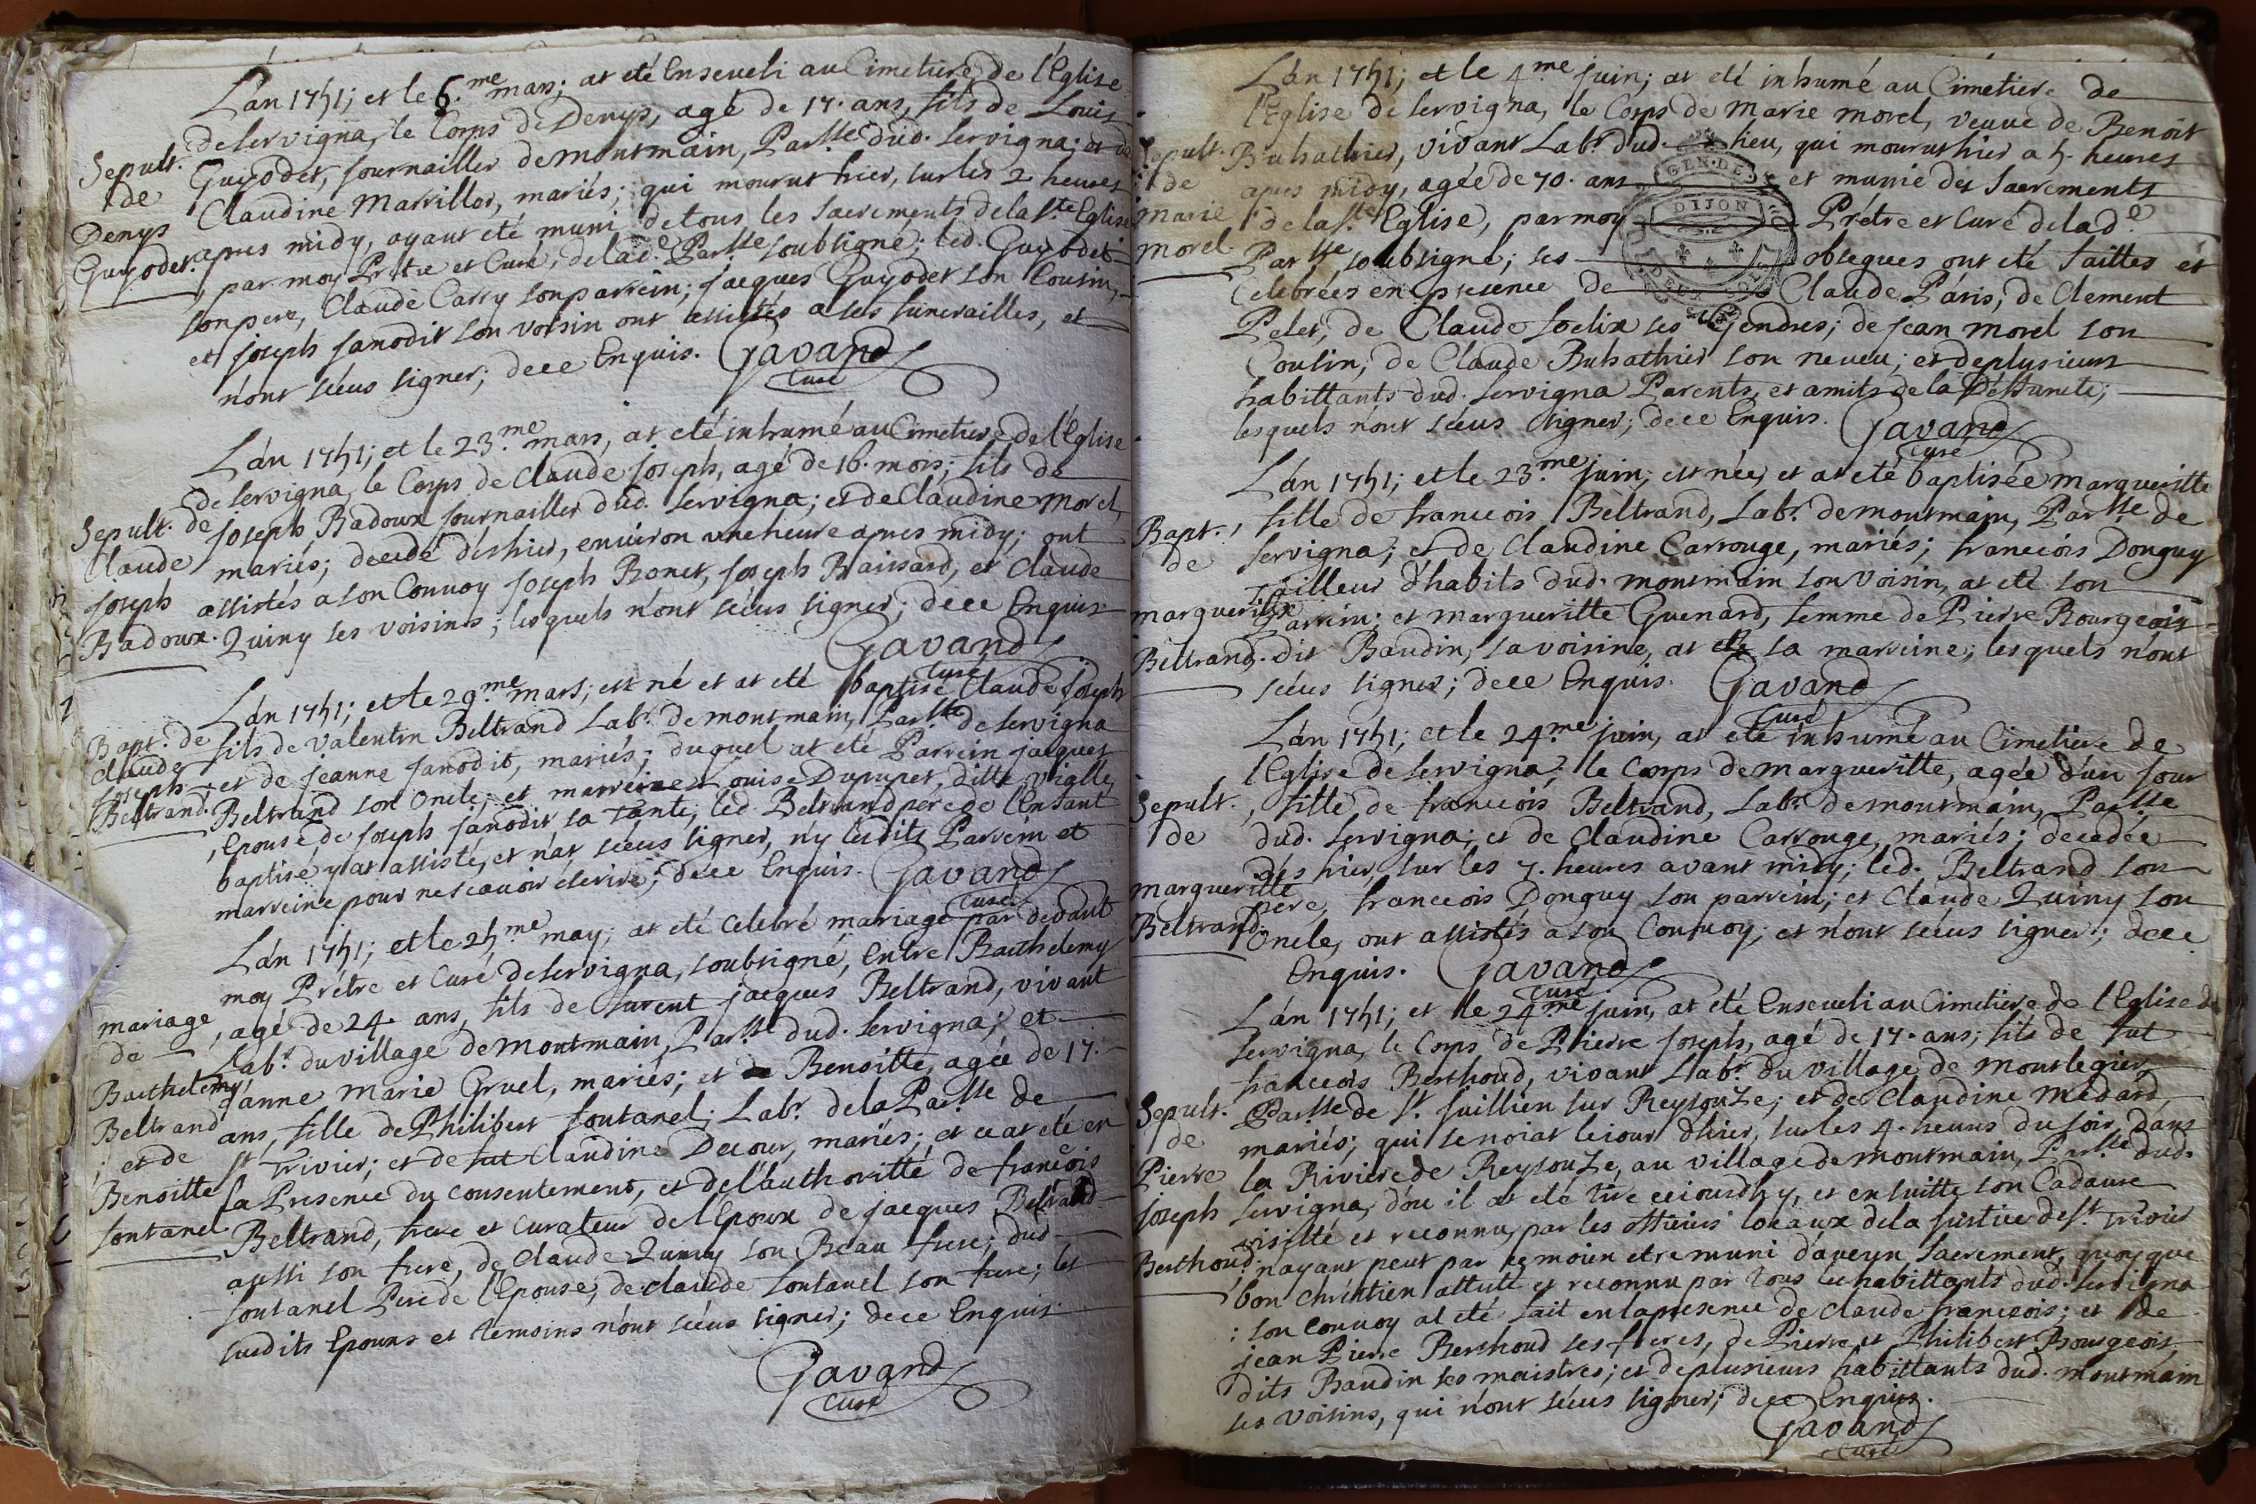 Lán 1751; et le 6.me mars; at eté Enseveli au Cimetiere de l'Eglise
de Servigna, le Corps de Denys, agé de 17. ans, fils de Louis
Guyodet, journailler de montmain, Par.sse dud. Servigna; et de
Claudine Marvillot, mariés; qui mourut hier, sur les 2. heures
apres midy, ayant eté muni de tous les Sacrements de la S.te Eglise
par moy Prêtre et Curé, de lad.e Par.sse soubsigné; led. Guyodet
son pere, Claude Carry son parrein; jacques Guyodet son Cousin,
et joseph janodit son voisin ont assistés a ses funerailles, et
n'ont sceus signer; de ce Enquis. Gavand
Curé
Sepult.
de
Denys
Guyodet.
Lán 1751; et le 23.me mars, at eté inhumé au Cimetiere de l'Eglise
de Servigna, le Corps de Claude joseph, agé de 16. mois; fils de
joseph Badoux journailler dud. Servigna; et de Claudine Morel,
mariés; decedé dés hier, environ une heure apres midy; ont
assistés a son Convoy joseph Bonet, joseph Baissard, et Claude
Quiny ses voisins; lesquels n'ont sceus signer; de ce Enquis
Gavand
Curé
Sepult. de
Claude
joseph
Badoux.
Lán 1751; et le 29.me mars; est né et at eté baptisé Claude joseph
fils de Valentin Beltrand Lab.r de montmain, Par.sse de Servigna
et de jeanne janodit, mariés; duquel at eté Parrein jacques
Beltrand son Oncle; et marreine Louise Dupupet, ditte Vialle,
Epouse de joseph janodit sa Tante; led Beltrand pere de l'Enfant
baptisé y at assisté, et n'at sceus signer, n'y lesdits Parrein et
marreine pour ne scavoir écrire; de ce Enquis. Gavand
Curé
Bapt. de
Claude
joseph
Beltrand.
Lán 1751; et le 25.me may; at eté Celebré mariage par devant
moy Prêtre et Curé de Servigna, soubsigné, Entre Barthelemy
agé de 24. ans, fils de furent jacques Beltrand, vivant
Lab.r du village de Montmain, Par.sse dud. Servigna; et
d'anne Marie Gruel, mariés; et de Benoitte, agée de 17.
ans, fille de Philibert fontanel; Lab.r de la Par.sse de
S.t Trivier; et de fut Claudine Decour, mariés; et ce at eté en
la Presence du consentement, et de l'authoritté de françois
Beltrand, frere et curateur de l'Epoux de jacques Beltrand
aussi son frere, de Claude Quiny son Beau frere; dud
fontanel Pere de l'Epouse, de claude fontanel son frere; les
susdits Epoux et temoins n'ont sceus signer; de ce Enquis
Gavand
Curé
mariage
de
Barthelemy
Beltrand
et de
Benoitte
fontanel
Lán 1751; et le 4.me juin; at eté inhumé au Cimetiere de
l'Eglise de Servigna, le Corps de Marie Morel, veuve de Benoit
Buhathier, vivant Lab.r dud. lieu, qui mourut hier a 5. heures
apres midy, agée de 70. ans et munie des Sacrements
de la S.te Eglise, par moy Prêtre et Curé de lad.e
Par.sse soubsigné; ses obseques ont eté faittes et
Celebrées en presence de Claude Páris, de Clement
Pelet, de Claude foelix ses Gendres; de jean Morel son
Cousin, de Claude Buhathier son neveu; et de plusieurs
habittants dud. Servigna Parents, et amits de la Déffuncte;
lesquels n'ont sceus signer; de ce Enquis. Gavand
Curé
Sepult.
de
marie
morel.
GEN. DE
DIJON
Lán 1751; et le 23.me juin; est née, et at eté baptisée margueritte
fille de franceois Beltrand, Lab.r de montmain, Par.sse de
Servigna; et de Claudine Carrouge, mariés; franceois Donguy
Tailleur d'habits dud. montmain son Voisin, at eté son
Parrein; et margueritte Guenard, femme de Pierre Bourgeois
dit Baudin, sa voisine, at eté sa marreine; lesquels n'ont
sceus signer; de ce Enquis. Gavand
Curé
Bapt.
de
margueritte
Beltrand.
Lán 1751; et le 24.me juin, at eté inhumé au Cimetiere de
l'Eglise de Servigna; le Corps de margueritte, agée d'un jour
fille de franceois Beltrand, Lab.r de montmain, Par.sse
dud. Servigna; et de Claudine Carrouge, mariés; decedée
dés hier, sur les 7. heures avant midy; led. Beltrand son
pere, franceois Donguy son parrein; et Claude Quiny son
Oncle, ont assistés a son Convoy; et n'ont sceus signer; de ce
Enquis. Gavand
Curé
Sepult.
de
margueritte
Beltrand.
Lán 1751; et le 24.me juin, at eté Enseveli au Cimetiere de l'Eglise de
Servigna, le Corps de Pierre joseph, agé de 17. ans; fils de fut
franceois Berthoud, vivant Lab.r du village de Montlegier,
Par.sse de S.t juillien sur Reysouze; et de Claudine Medard,
mariés; qui se noiat le iour d'hier, sur les 4. heures du soir, dans
la Riviere de Reysouze, au village de montmain, Par.sse dud.
Servigna, d'ou il at eté tiré ceiourdhy, et en suitte son Cadavre
visitté et reconnu par les officiers locaux de la justice de S.t Trivier
n'ayant peut par ce moien etre muni d'aveun Sacrement, quoyque
bon chrêtien attesté et reconnu par tous les habittants dud. Servigna
: son convoy at eté fait en la presence de claude franceois; et de
jean Pierre Berthoud ses freres, de Pierre et Philibert Bourgeois,
dits Baudin ses maistres; et de plusieurs habittants dud. montmain
ses voisins, qui n'ont sceus signer; de ce Enquis.
Gavand
Curé
Sepult.
de
Pierre
joseph
Berthoud